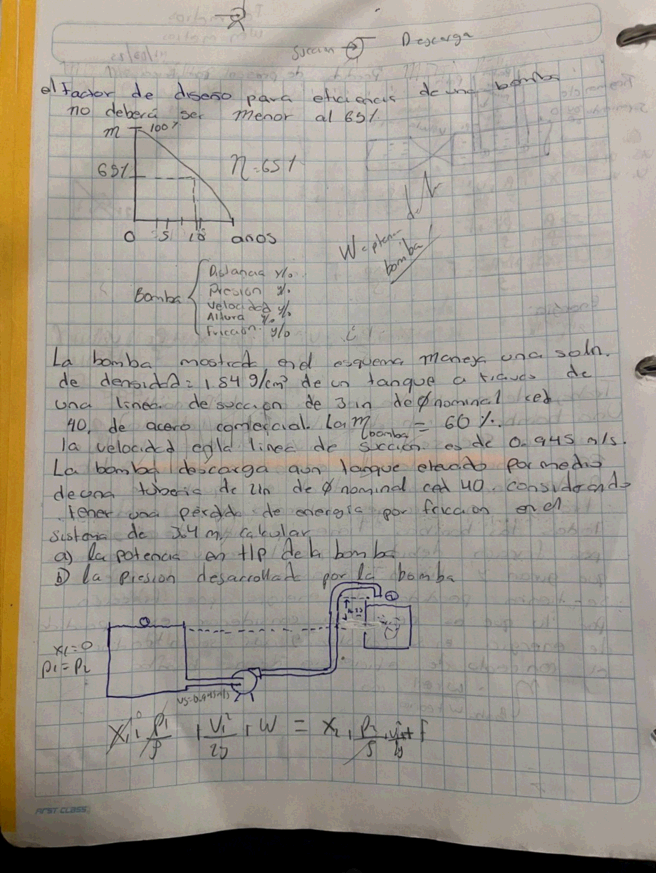 Succión Descarga
el factor de diseño para eficiencia de una bomba
no deberá ser menor al 65%
m 100%
65% η=65%
0 5 10 anos
W=
bomba
Bomba
Distancia %
Presion %
Velocidad %
Altura %
Friccion %
La bomba mostrada en el esquema maneja una soln.
de densidad = 1.84 g/cm³ de un tanque a traves de
una linea de succion de 3 in de Ø nominal ced
40, de acero comercial. La η bomba = 60 %.
la velocidad en la linea de succión es de 0.945 m/s.
La bomba descarga a un tanque elevado por medio
de una tuberia de 2in de Ø nominal ced 40. considerando
tener una pérdida de energía por friccion en el
sistema de 3.4 m, calcular
a) la potencia en HP de la bomba
b) la presion desarrollada por la bomba
① ②
x₁=0
P₁=P₂
Vs=0.945m/s
X₁ + P₁/ρ + V₁²/2g + W = X₂ + P₂/ρ + V₂²/2g + F
FIRST CLASS